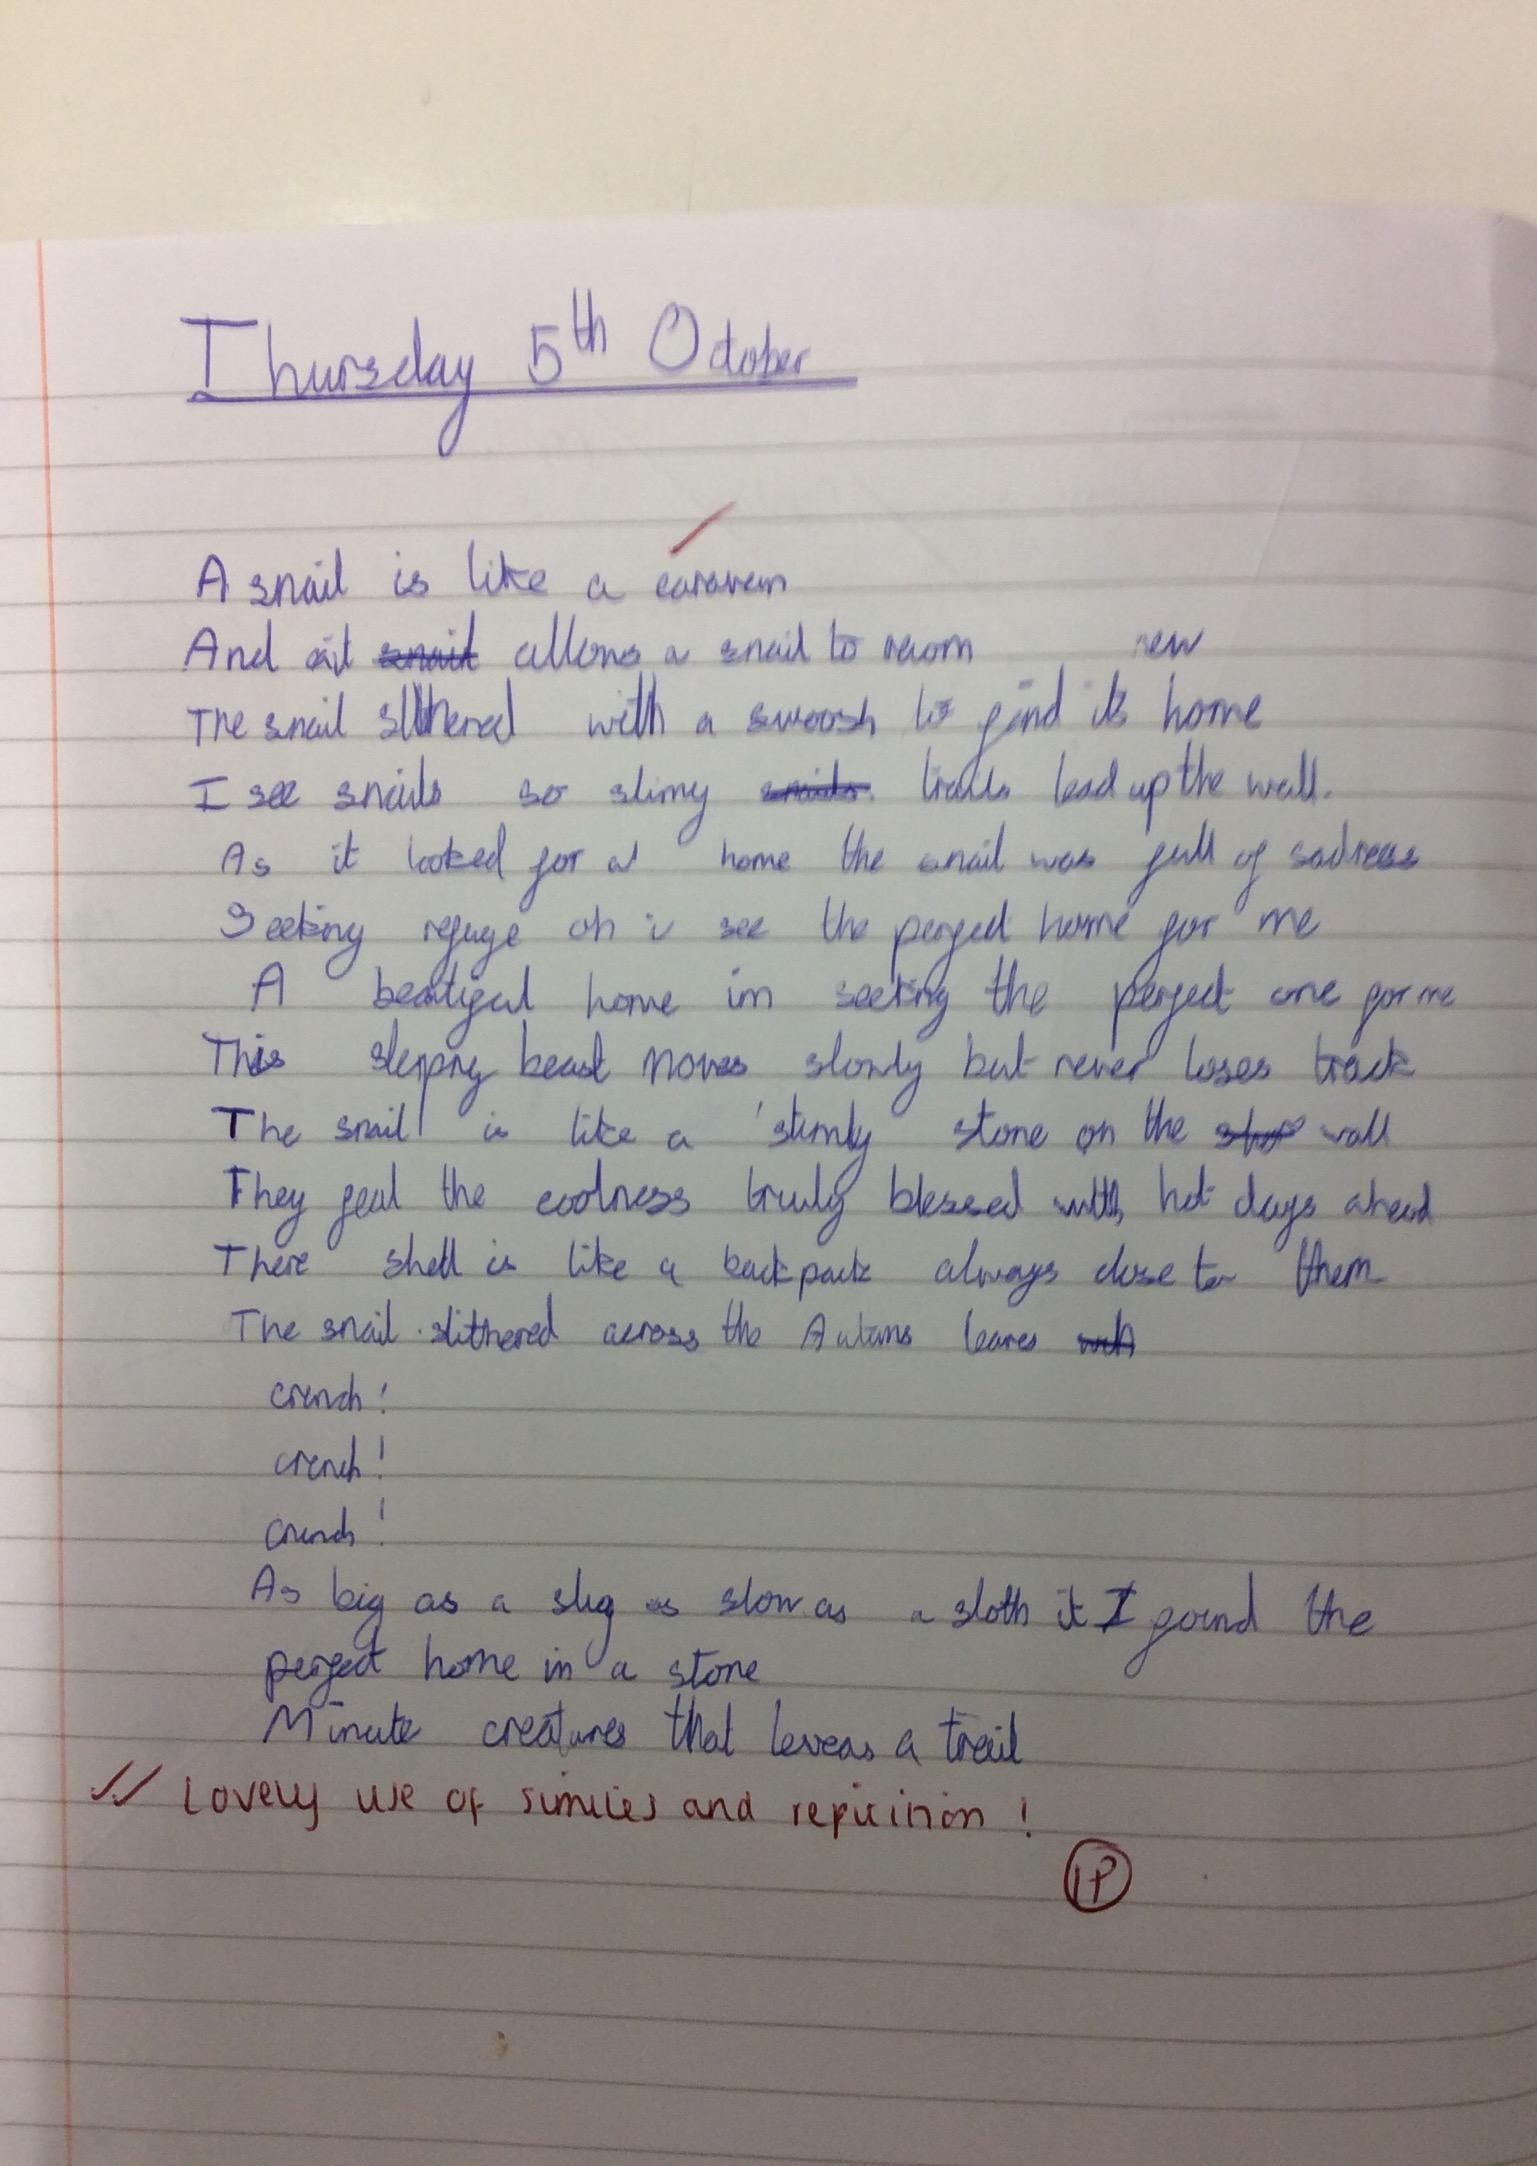 Thursday 5th October
A snail is like a caravan
And it allows a snail to raom
new
The snail slithered with a swoosh to find its home
I see snails so slimy trails lead up the wall.
As it looked for a home the snail was full of sadness
Seeking refuge oh i see the perfect home for me
A beatiful home im seeking the perfect one for me
This sleppng beast moves slowly but never loses track
The snail is like a stimly stone on the wall
They feal the coolness truly blessed with hot days ahead
There shell is like a backpack always close to them
The snail slithered across the Autams leaves
crunch!
crunch!
crunch!
As big as a slug as slow as a sloth it I found the
perfect home in a stone
Minute creatures that leveas a trail
Lovely use of similes and repitition!
1P